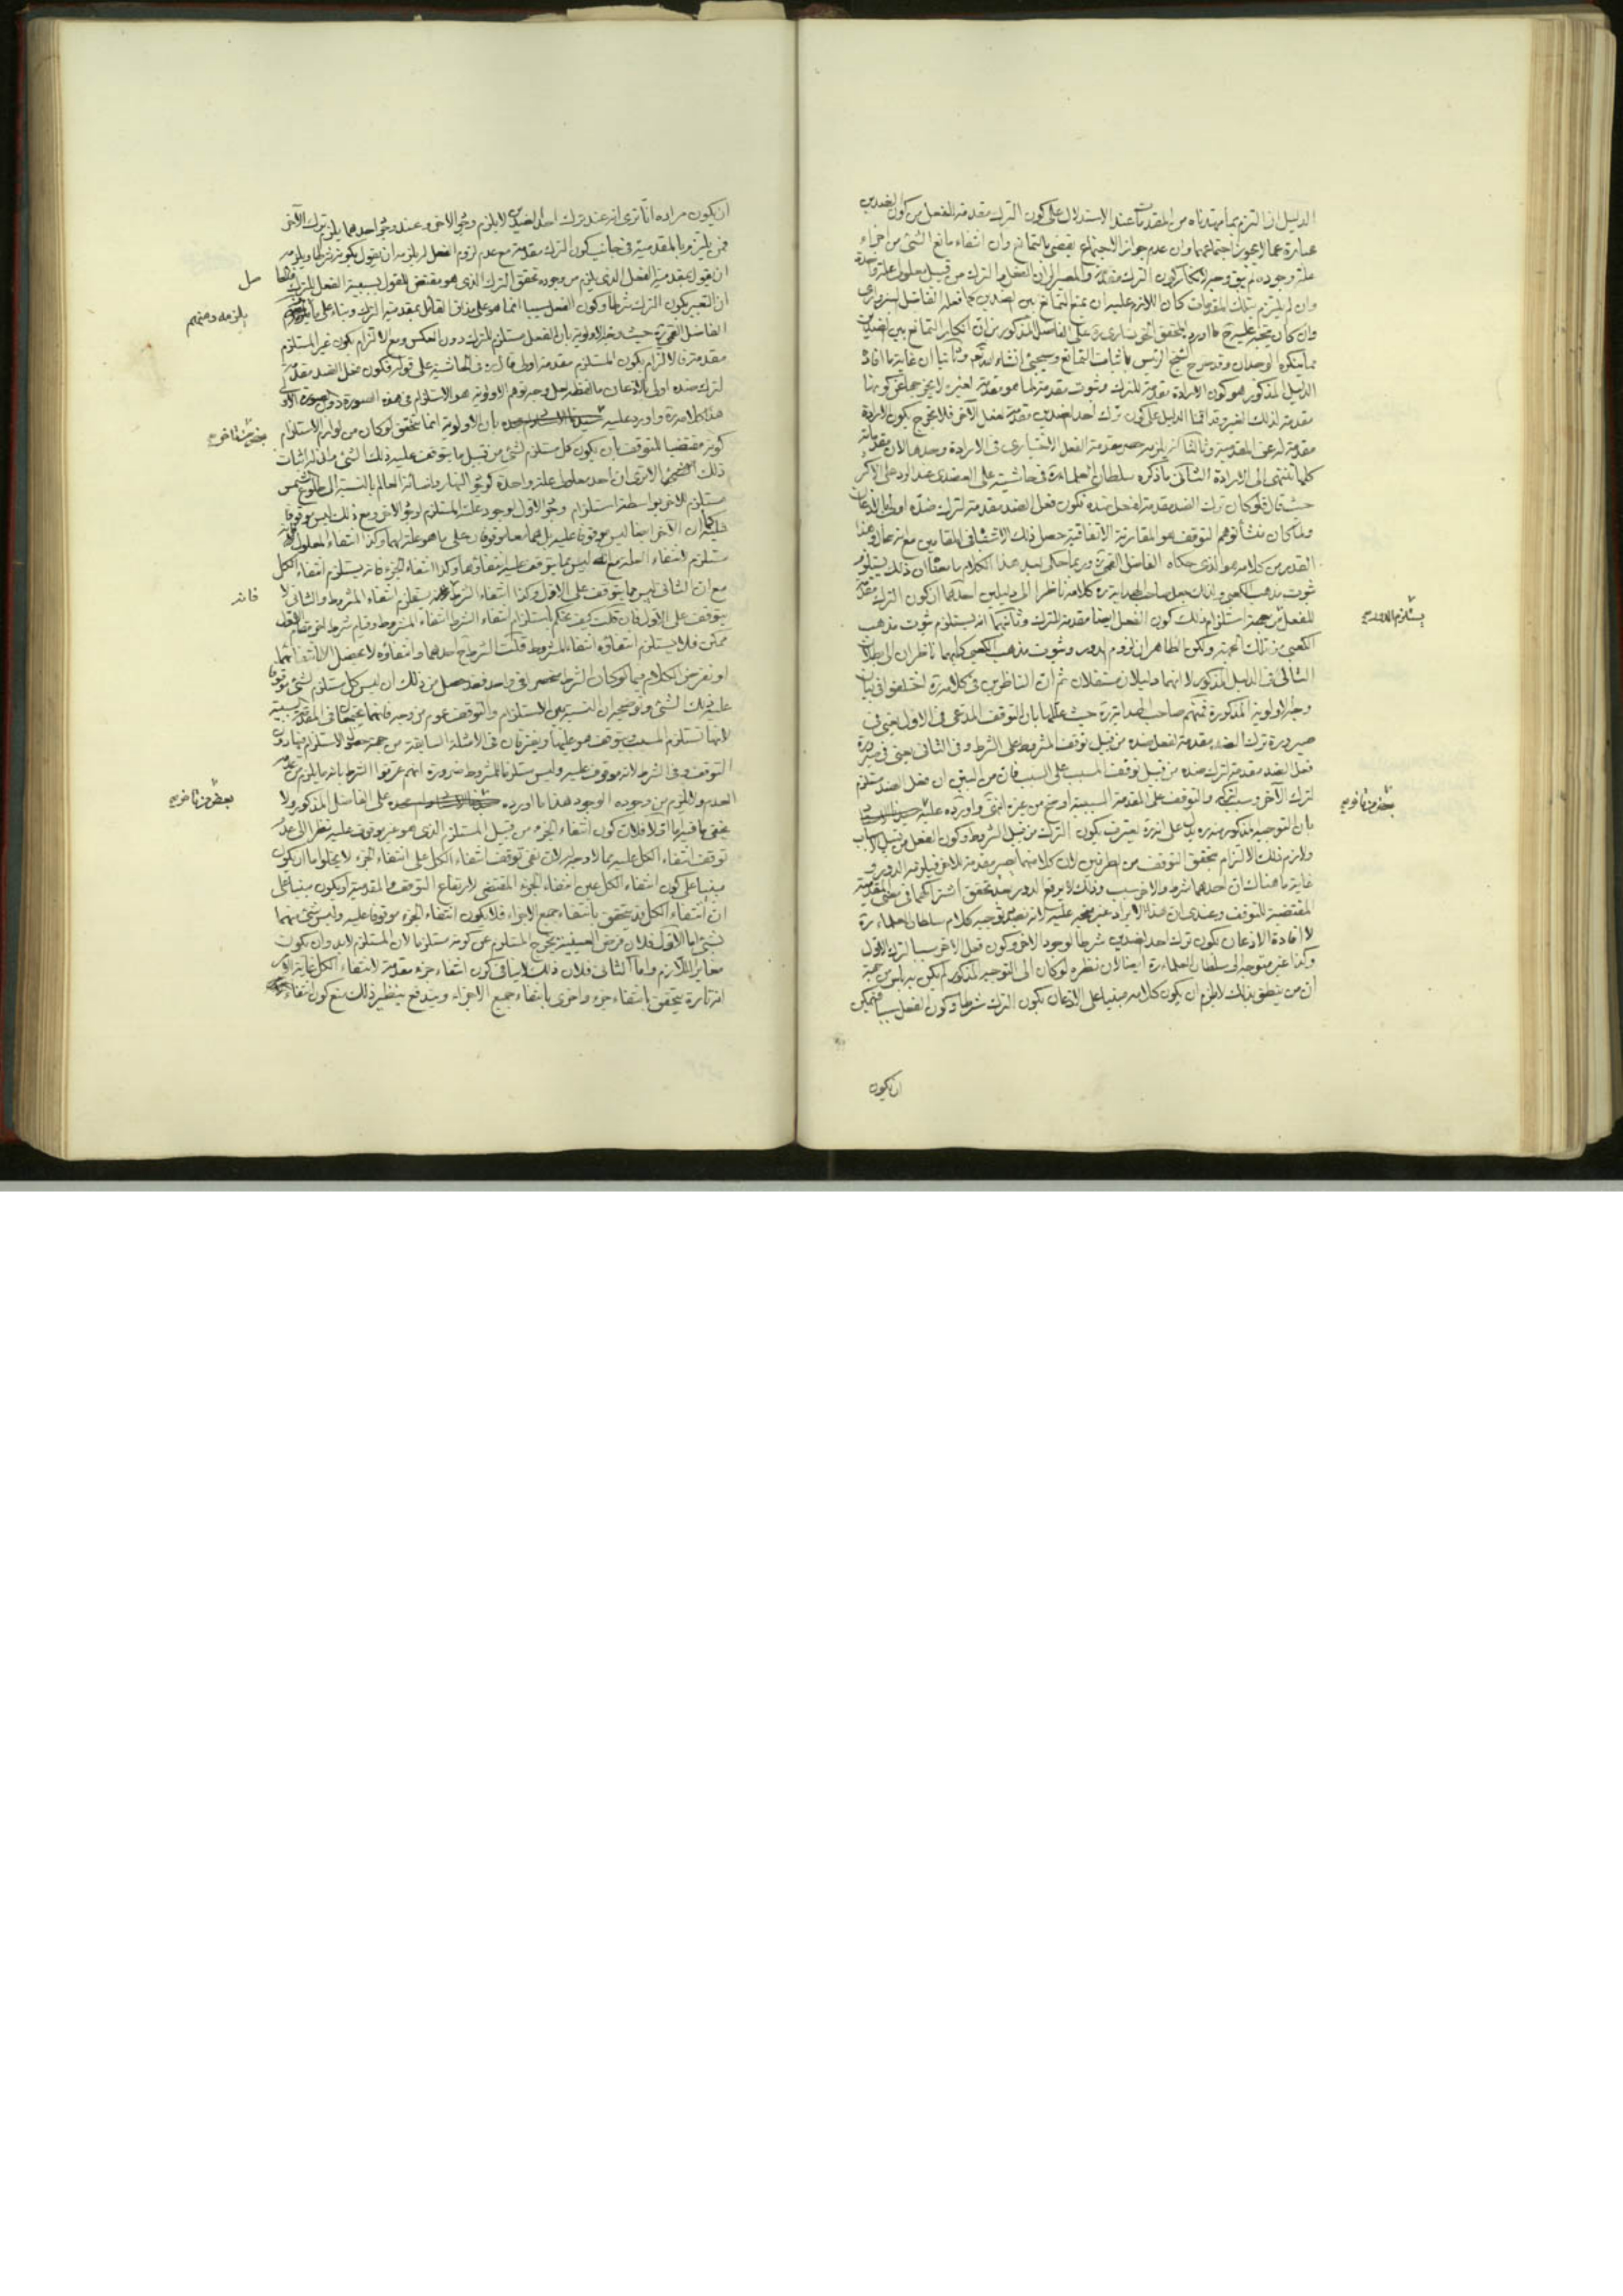 الدليل ان التزم بما مهدناه من المقدمات عند الاستدلال على كون الترك مقدمة للفعل من كون الضدين
عبارة عما لا يجوز اجتماعهما وان عدم جواز الاجتماع يقضى بالتمانع وان انتفاء مانع الشئ من اجزاء
علة وجوده لم يبق وجه لانكار كون الترك مقدمة والمصير الى ان الفعل والترك من قبيل معلولى علة واحدة
وان لم يلتزم بتلك المقدمات كان اللازم عليه ان يمنع التمانع بين الضدين كما فعله الفاضل السبزوارى
وان كان يتجه عليه ما اورده المحقق الخونسارى ره على الفاضل المذكور من ان انكار التمانع بين الضدين
مما ينكره الوجدان وقد صرح الشيخ الرئيس باثبات التمانع وسيجئ انشاء الله تعم وثانيا ان غاية ما افاد
الدليل المذكور هو كون الارادة مقدمة للترك وثبوت مقدمة لما هو مقدمة لغيره لا يخرجها عن كونها
مقدمة لذلك الغير وقد اقمنا الدليل على كون ترك احد الضدين مقدمة لفعل الآخر فلا يخرج بكون الارادة
مقدمة له عن المقدمية وثالثا انه يلزم حصر مقدمة الفعل الاختيارى فى الارادة وحدها لان مقدماته
كلها تنتهى الى الارادة الثانى ما ذكره سلطان العلماء ره فى حاشيته على العضدى عند الرد على الاكثر
حيث قال فلو كان ترك الضد مقدمة لفعل ضده فكون فعل الضد مقدمة لترك ضده اولى بالاذعان
ولما كان منشأ توهم التوقف هو المقارنة الاتفاقية حصل ذلك الاشتباه فى المقامين مع انه محال وهذا
القدر من كلامه هو الذى حكاه الفاضل القمى ره وربما حكى بعد هذا الكلام ما معناه ان ذلك يستلزم
ثبوت مذهب الكعبى ولذلك جعل صاحب الهداية ره كلامه ناظرا الى دليلين احدهما ان كون الترك مقدمة
للفعل من جهة استلزام ذلك كون الفعل ايضا مقدمة للترك وثانيهما انه يستلزم ثبوت مذهب
الكعبى من تلك الجهة ولكن الظاهر ان لزوم الدور وثبوت مذهب الكعبى كليهما ناظران الى بطلان
التالى فى الدليل المذكور لا انهما دليلان مستقلان ثم ان الناظرين فى كلامه ره اختلفوا فى بيان
وجه الاولوية المذكورة فمنهم صاحب الهداية ره حيث عللها بان التوقف المدعى فى الاول يعنى فى
صيرورة ترك الضد مقدمة لفعل ضده من قبيل توقف المشروط على الشرط وفى الثانى يعنى فى صيرورة
فعل الضد مقدمة لترك ضده من قبيل توقف المسبب على السبب فان من البين ان فعل الضد مستلزم
لترك الآخر وسبب لتركه والتوقف على المقدمة السببية اوضح من غيره انتهى واورده عليه
بان التوجيه المذكور منه ره يدل على انه ره يعترف بكون الترك من قبيل الشروط وكون الفعل من قبيل الاسباب
ولازم ذلك الالتزام بتحقق التوقف من الطرفين لان كلا منهما يصير مقدمة للآخر فيلزمه الدور و
غاية ما هناك ان احدهما شرط والآخر سبب وذلك لا يرفع الدور بعد تحقق اشتراكهما فى معنى المقدمية
المقتضية للتوقف وعندى ان هذا الايراد غير متجه عليه لانه بصدد توجيه كلام سلطان العلماء ره
لا افادة الاذعان بكون ترك احد الضدين شرطا لوجود الآخر وكون فعل الآخر سببا لترك الاول
وكذا غير متوجه الى سلطان العلماء ره ايضا لان نظره لو كان الى التوجيه المذكور لم يكن به باس من جهة
ان من ينطق بذلك لا يلزم ان يكون كلامه مبنيا على الاذعان بكون الترك شرطا وكون الفعل سببا فيمكن
ان يكون
يستلزم الدور
بعض من تاخر
ان يكون مراده انا نرى انه عند ترك احد الضدين لا يلزم وجود الآخر وعند وجود احدهما يلزم ترك الآخر
فمن يلتزم بالمقدمية فى جانب كون الترك مقدمة مع عدم لزوم الفعل له يلزمه ان يقول بكونه شرطا ويلزمه
ان يقول بمقدمية الفعل الذى يلزم من وجوده تحقق الترك الذى هو مقتضى للقول بسببية الفعل للترك
ان التعبير بكون الترك شرطا وكون الفعل سببا انما هو على مذاق القائل بمقدمية الترك وبناء على ما
الفاضل القمى ره حيث وجه الاولوية بان الفعل مستلزم للترك دون العكس ومع الالتزام بكون غير المستلزم
مقدمة فالالتزام بكون المستلزم مقدمة اولى قال ره فى الحاشية على قوله فكون فعل الضد مقدمة
لترك ضده اولى بالاذعان ما لفظه لعل وجه توهم الاولوية هو الاستلزام فى هذه الصورة دون الصورة الاولى
هذا كلامه ره واورد عليه بان الاولوية انما تتحقق لو كان من لوازم الاستلزام
كونه مقتضيا للتوقف بان يكون كل مستلزم لشئ من قبيل ما يتوقف عليه ذلك الشئ وانى له اثبات
ذلك الا ترى ان احد معلولى علة واحدة كوجود النهار واضائة العالم بالنسبة الى طلوع الشمس
مستلزم للآخر بواسطة استلزام وجود الاول لوجود علته المستلزم لوجود الآخر ومع ذلك ليس موقوفا
عليه كما ان الآخر ايضا ليس موقوفا عليه بل هما معا موقوفان على ما هو علة لهما وكذا انتفاء المعلول فانه
مستلزم لانتفاء العلة مع انه ليس مما يتوقف عليه انتفاؤها وكذا انتفاء الجزء فانه يستلزم انتفاء الكل
مع ان الثانى ليس مما يتوقف على الاول وكذا انتفاء الشرط يستلزم انتفاء المشروط والثانى لا
يتوقف على الاول فان قلت كيف تحكم باستلزام انتفاء الشرط انتفاء المشروط وقيام شرط آخر مقام الاول
ممكن فلا يستلزم انتفاؤه انتفاء المشروط قلت الشرط ح احدهما وانتفاؤه لا يحصل الا بانتفائهما
او نفرض الكلام فيما لو كان الشرط منحصرا فى واحد فقد حصل من ذلك ان ليس كل مستلزم لشئ موقوفا
عليه ذلك الشئ وتوضيحه ان النسبة بين الاستلزام والتوقف عموم من وجه فانهما يجتمعان فى المقدمة السببية
لانها تستلزم المسبب ويتوقف هو عليها ويفترقان فى الامثلة السابقة من جهة حصول الاستلزام فيها دون
التوقف وفى الشرط لانه موقوف عليه وليس مستلزما للمشروط ضرورة انهم عرفوا الشرط بانه ما يلزم من عدمه
العدم ولا يلزم من وجوده الوجود هذا ما اورده على الفاضل المذكور ولا
يخفى ما فيه اما اولا فلان كون انتفاء الجزء من قبيل المستلزم الذى هو غير موقوف عليه نظرا الى عدم
توقف انتفاء الكل عليه مما لا وجه له لان نفى توقف انتفاء الكل على انتفاء الجزء لا يخلو اما ان يكون
مبنيا على كون انتفاء الكل عين انتفاء الجزء المقتضى لارتفاع التوقف والمقدمية او يكون مبنيا على
ان انتفاء الكل قد يتحقق بانتفاء جميع الاجزاء فلا يكون انتفاء الجزء موقوفا عليه وليس شئ منهما
بشئ اما الاول فلان فرض العينية يخرج المستلزم عن كونه مستلزما لان المستلزم لابد وان يكون
مغايرا للازم واما الثانى فلان ذلك لا ينافى كون انتفاء جزء مقدمة لانتفاء الكل غاية الامر
انه تارة يتحقق بانتفاء جزء واخرى بانتفاء جميع الاجزاء ويندفع بنظير ذلك منع كون انتفاء
يلزمه ومنهم
بعض من تاخر
فانه
بعض من تاخر